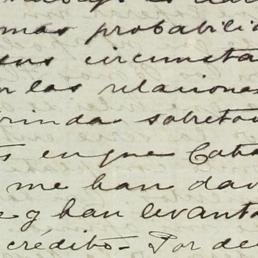 mas probabilid
sus circunsta
n las relaciones
rindas sobreto
s en que Caba
me han dav
e y han levanta
crédito - Por de